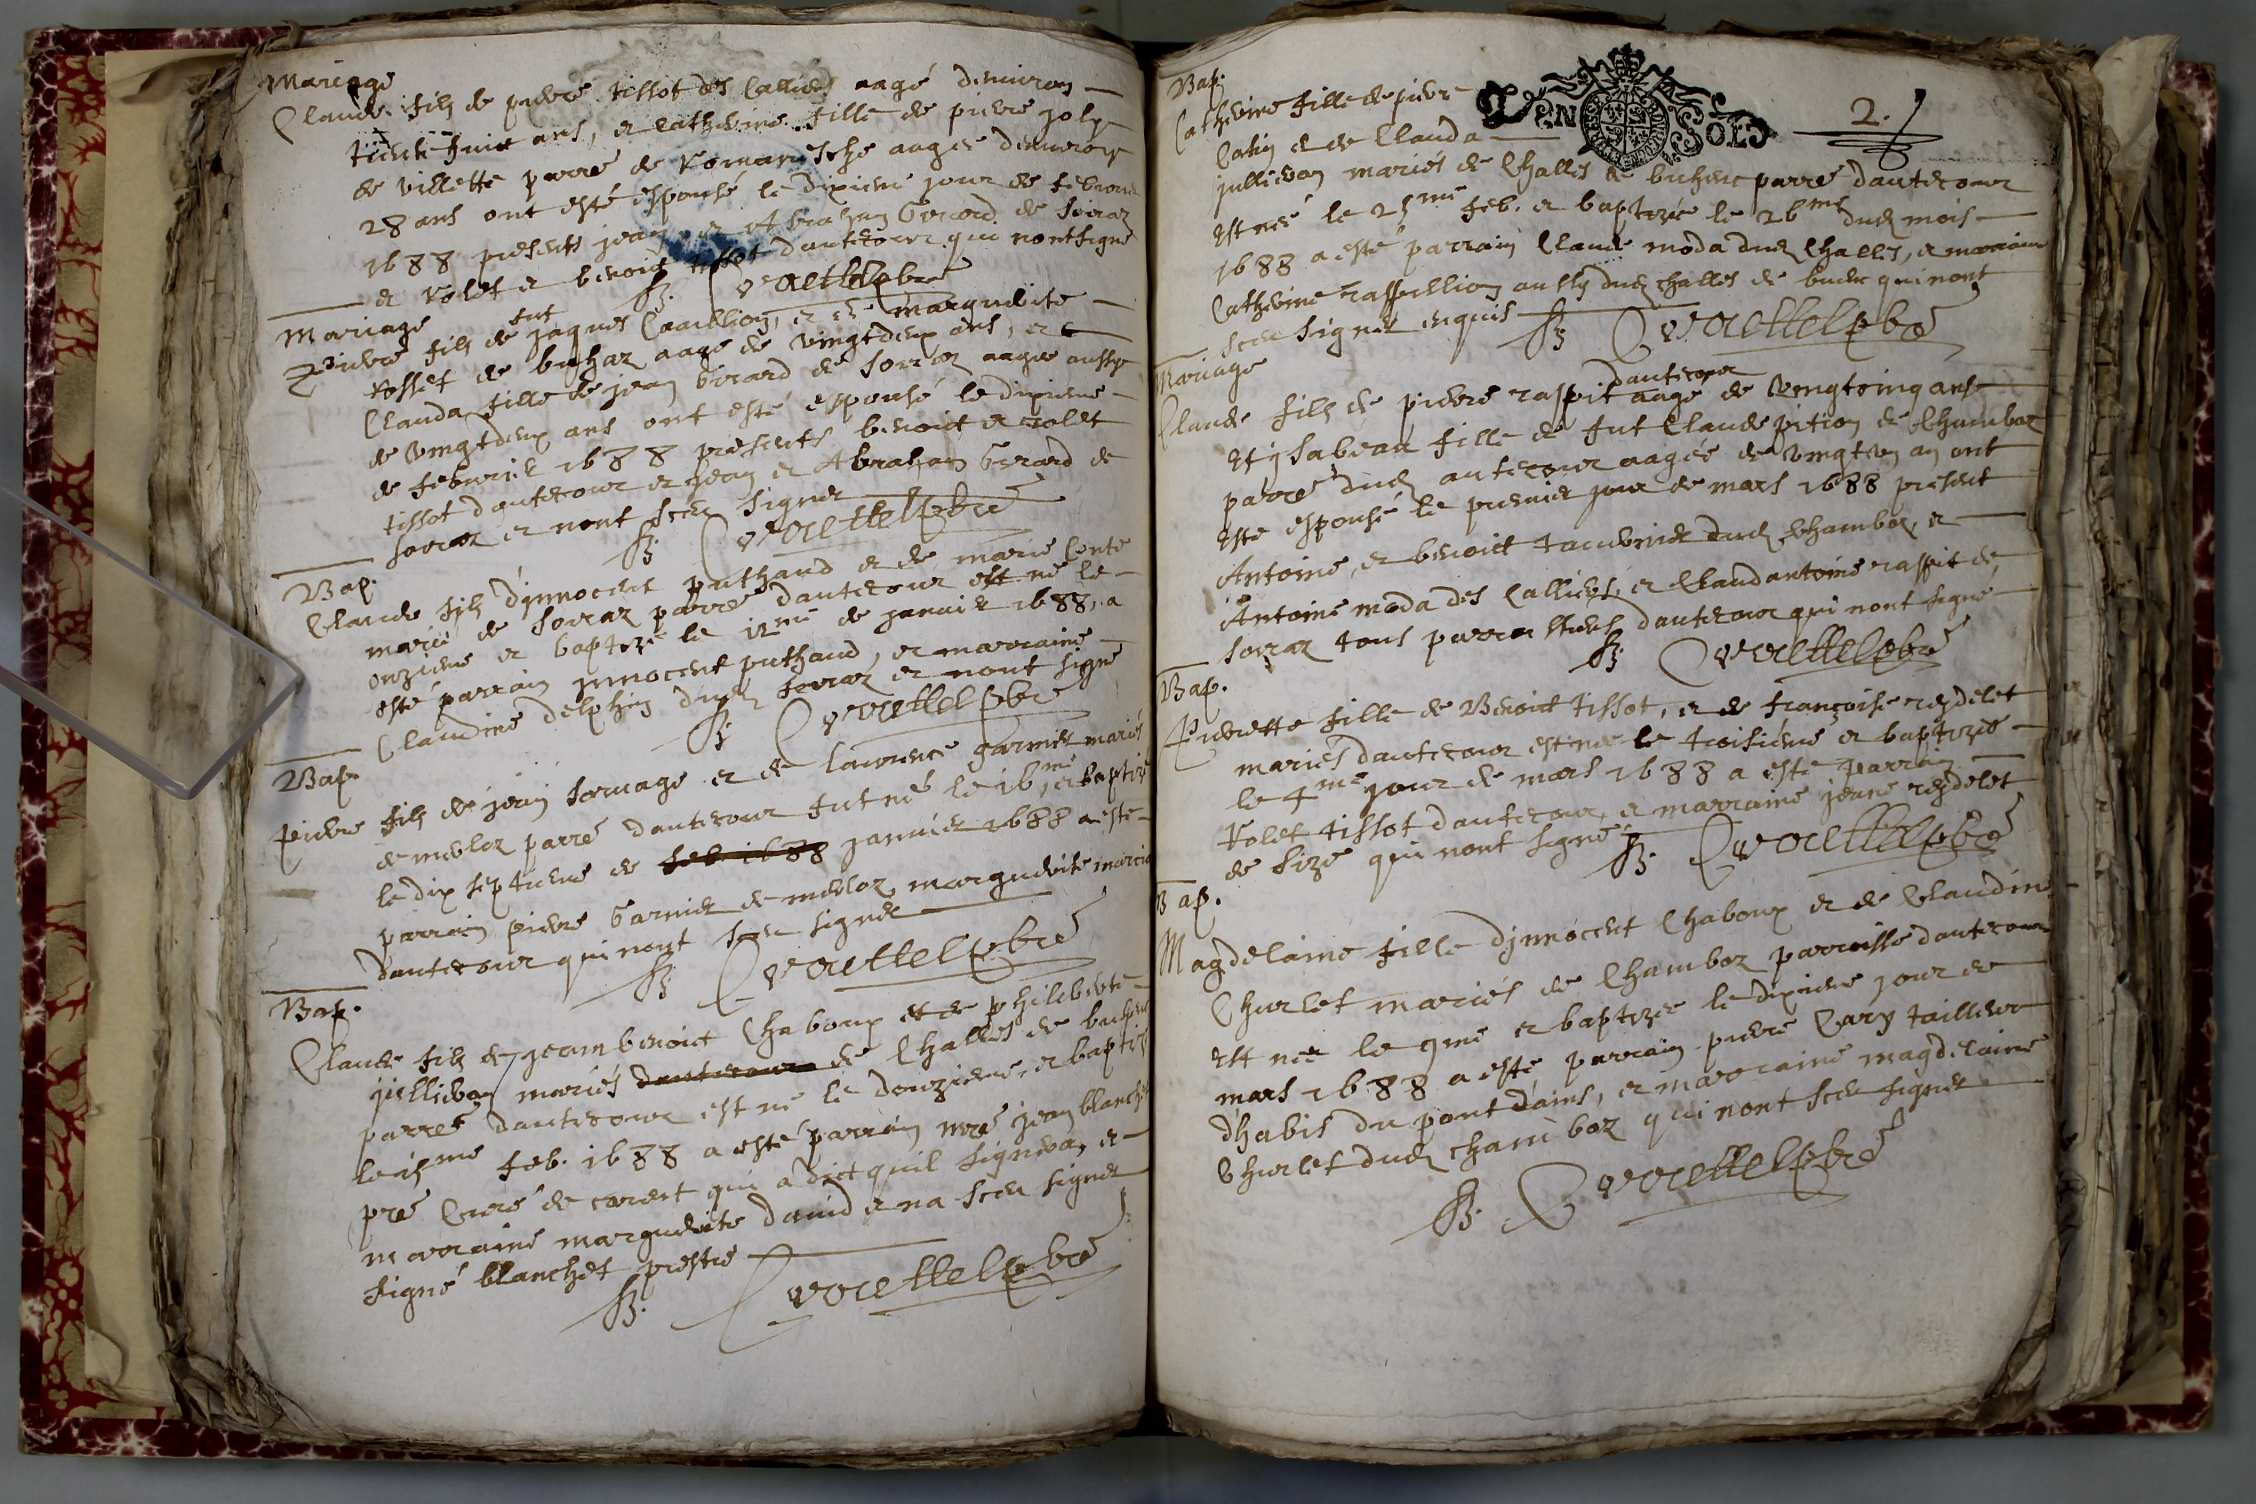 Mariage
Claude fils de pierre tissot des Callies aagé denuiron
trente huit ans, et catherine fille de pierre joly
de villette parre de Romanesche aagee denuiron
28 ans ont esté espousé le dixieme jour de febvrier
1688 presents jean et Abraham Girard de sorraz
et rolet et benoict tissot dauterour qui nont signé
Mariage
Pierre fils de fut jaques et de marguerite
rosset de buhaz aagé de vingtdeux ans, et
Clauda fille de jean Girard de sorraz aagee aussy
de vingtdeux ans ont esté espousé le dixieme
de febvrier 1688 presents benoict et rolet
tissot dauterour et jean et Abraham Gerard de
sorraz et nont sceu signer
Bap.
Claude fils d'jnnocent puthaud et de marie Conte
mariés de sorraz parre dauterour est né le
onzieme et baptizé le 12me de januier 1688, a
esté parrain jnnocent puthaud, et marraine
Claudine delphin dud sorraz et nont signé
Bap.
pierre fils de jean sornage et de laurence garnier mariés
de merloz parre dauterour fut né le 16me, et baptizé
le dix septieme de feb. 1688 januier 1688 a esté
parrain pierre Garnier de merloz, marguerite
dauterour qui nont sceu signer
Bap.
Claude fils de jeambenoict Chaboux et de philiberte
jullieron mariés dauterour de Challes de buhenc
parre dauterour est né le douzieme, et baptizé
le 15me feb. 1688 a esté parrain mre jean blanchet
pre Curé de cordent qui a dict quil signera, et
marraine marguerite dauid et na sceu signer
signé blanchet prestre
Bap.
Catherine fille de pierre
Catin et de Clauda
VEN SOLS
2.
jullieron mariés de Challes de buhenc parre dauterour
est née le 25me feb. et baptizée le 26me dud mois
1688 a esté parrain Claude moda dud Challes, et marraine
Catherine raspillion aussy dud challes de buenc qui nont
sceu signer enquis
Mariage
Claude fils de pierre raspit dauterour aagé de vingtcinq ans
et ysabeau fille de fut Claude pition de Chamboz
parre dud auterour aagée de vingtun an ont
esté espousé le premier jour de mars 1688 present
Antoine, et benoict tauernier dud chamboz, et
Antoine moda des Callies, et Claudantoine raspit de
sorraz tous parroissiens dauterour qui nont signé
Bap.
Pierrette fille de Benoict tissot, et de françoise reydelet
mariés dauterour est née le troisieme et baptizée
le 4me jour de mars 1688 a esté parrain
Rolet tissot dauterour, et marraine jeane reydelet
de size qui nont signé
Bap.
Magdelaine fille d'jnnocent Chaboux et de Claudine
Churlet mariés de Chamboz parroisse dauterour
est née le 9me et baptizée le dixieme jour de
mars 1688 a esté parrain pierre Cary tailleur
d'habis du pont dains, et marraine magdelaine
Churlet dud chamboz qui nont sceu signer